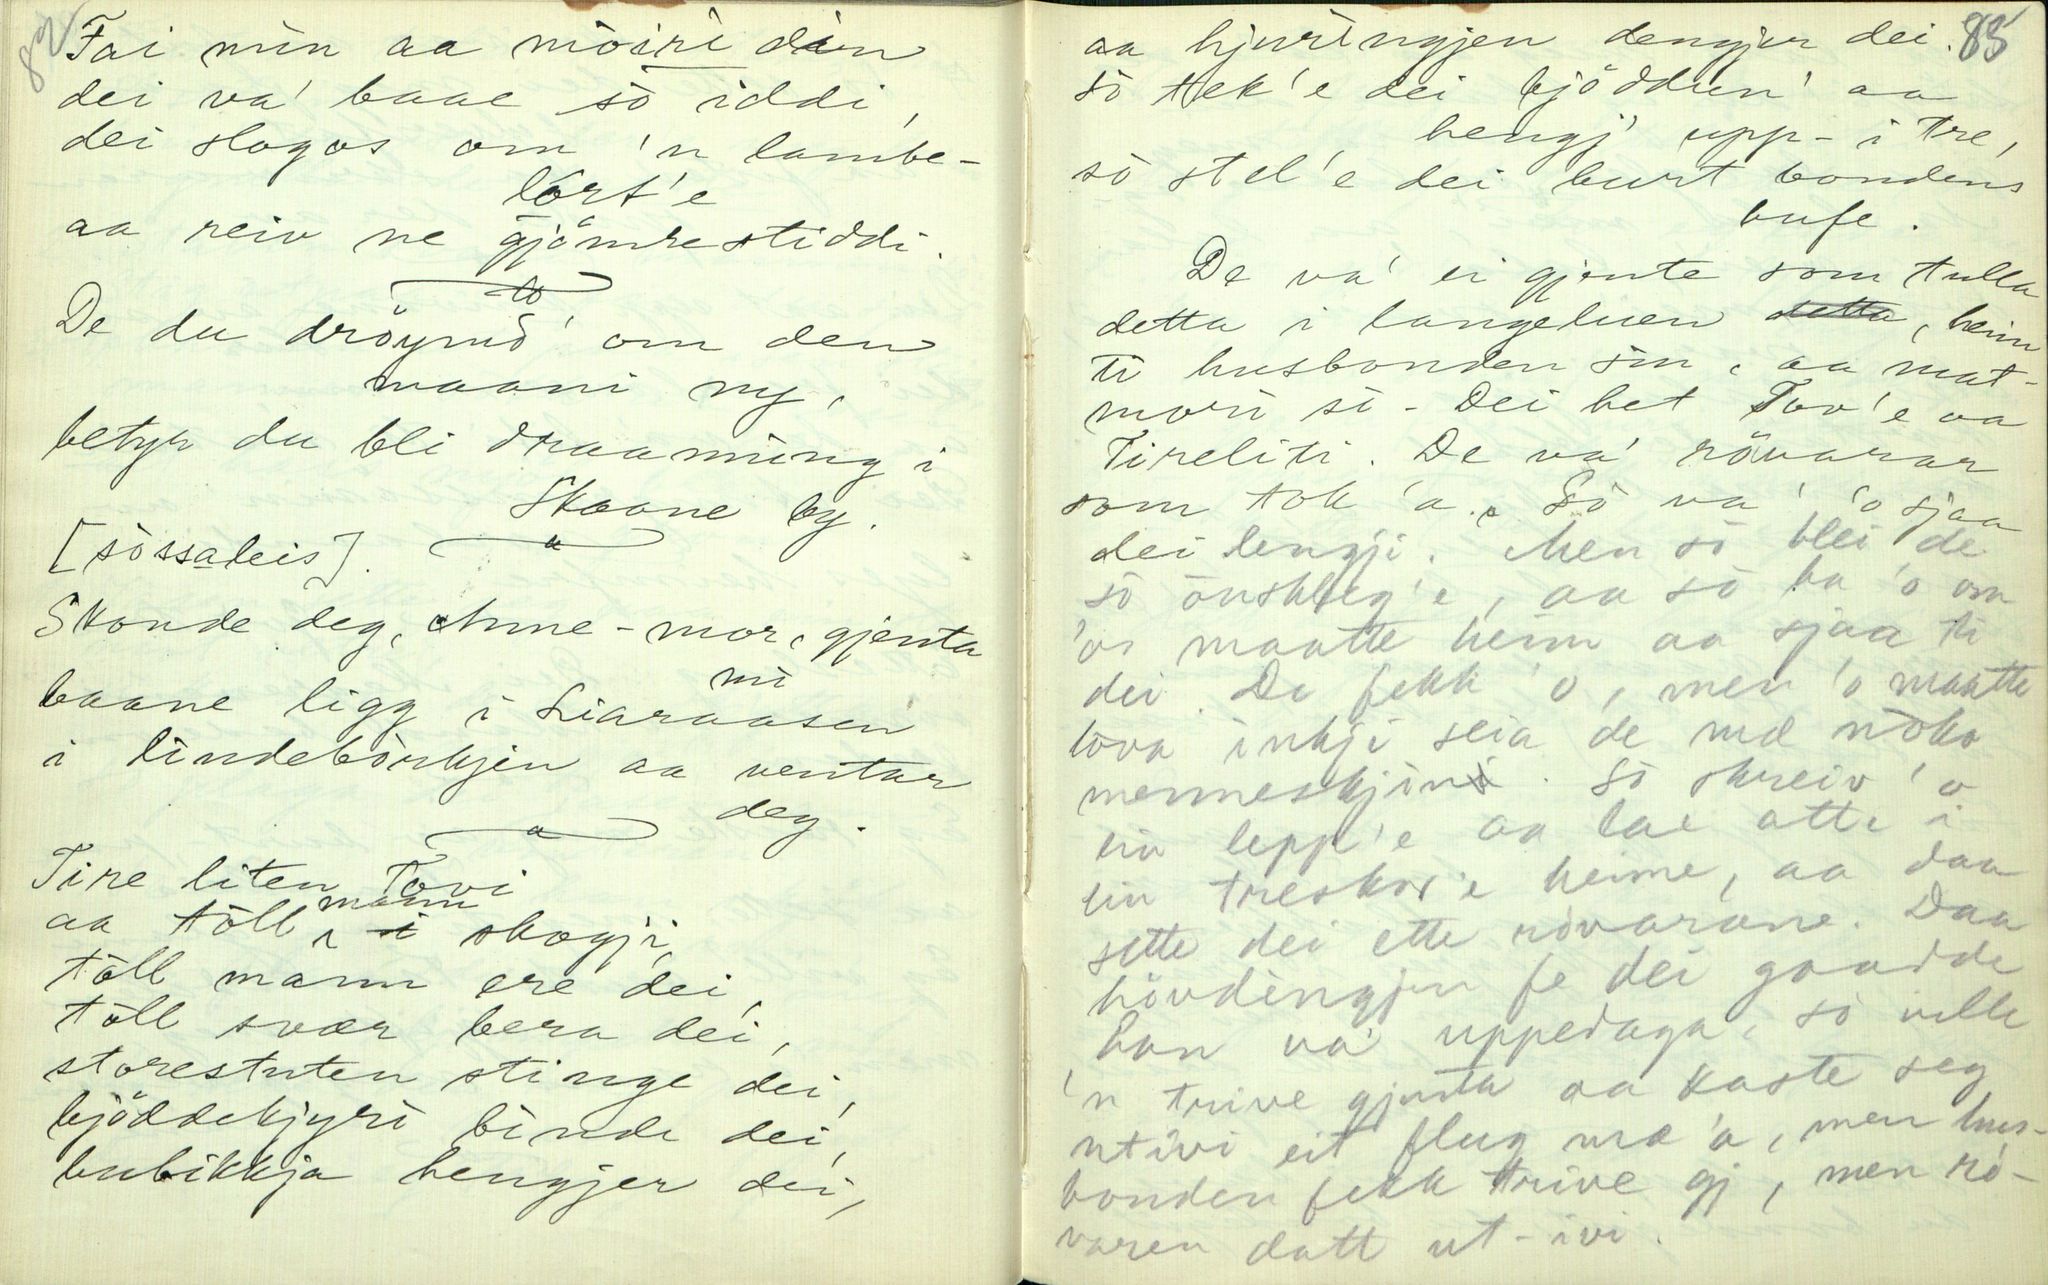 82
Fai min aa möiri din
dei va' baae sö iddi,
dei slogos om 'n lambe-
lort'e
aa reiv ne gjömrestiddi.
De du dröymö' om den
maani ny,
betyr du bli draaming i
Skaane by.
[sössaleis].
Skonde deg, Anne-mor, gjenta
mi
baane ligg i Liaraasen
i lindebörkjen aa ventar
deg.
Tire liten Tovi
aa töll mann i skogji,
töll mann ere dei,
töll svær bera dei,
storestuten stinge dei,
bjöddekjyri binde dei,
bubikkja hengjer dei,
83
aa hjuringjen dengjer dei.
Sö tek'e dei bjöddun' aa
hengj' upp-i tre,
sö stel'e dei burt bondens
bufe.
De va' ei gjente som tulla
detta i langeluen detta, heim
ti husbonden sin, aa mat-
mori si - Dei het Tov'e aa
Tireliti. De va' rövarar
som tok 'a. Sö va' 'o sjaa
dei lengji. Men sö blei de
sö önskleg'e, aa sö ba 'o om
'os maatte heim aa sjaa ti
dei. De fekk 'o, men 'o maatte
lova inkji seia de mæ nöko
menneskjin. Sö skreiv 'o
ein lepp'e aa lae atti i
ein treskor'e heime, aa daa
sette dei ette rövarane. Daa
hövdingjen fe dei gaadde
han va' uppedaga, sö ville
'n trive gjenta aa kaste seg
utivi eit flug mæ 'a, men hus-
bonden fekk trive gj, men rö-
varen datt ut-ivi.